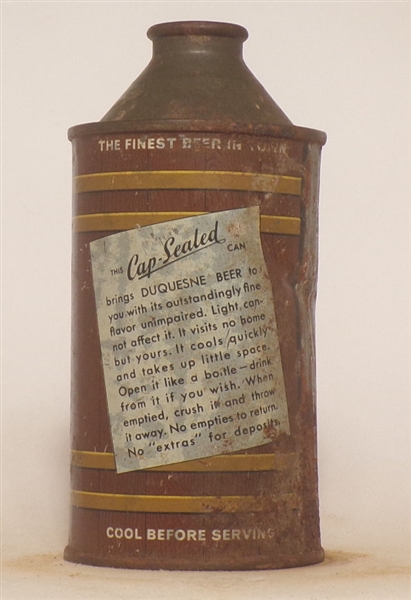 THE FINEST BEER IN TOWN
THIS Cap-Sealed CAN
brings DUQUESNE BEER to
you with its outstandingly fine
flavor unimpaired. Light, can-
not affect it. It visits no home
but yours. It cools quickly
and takes up little space.
Open it like a bottle—drink
from it if you wish. When
emptied, crush it and throw
it away. No empties to return.
No "extras" for deposit.
COOL BEFORE SERVING